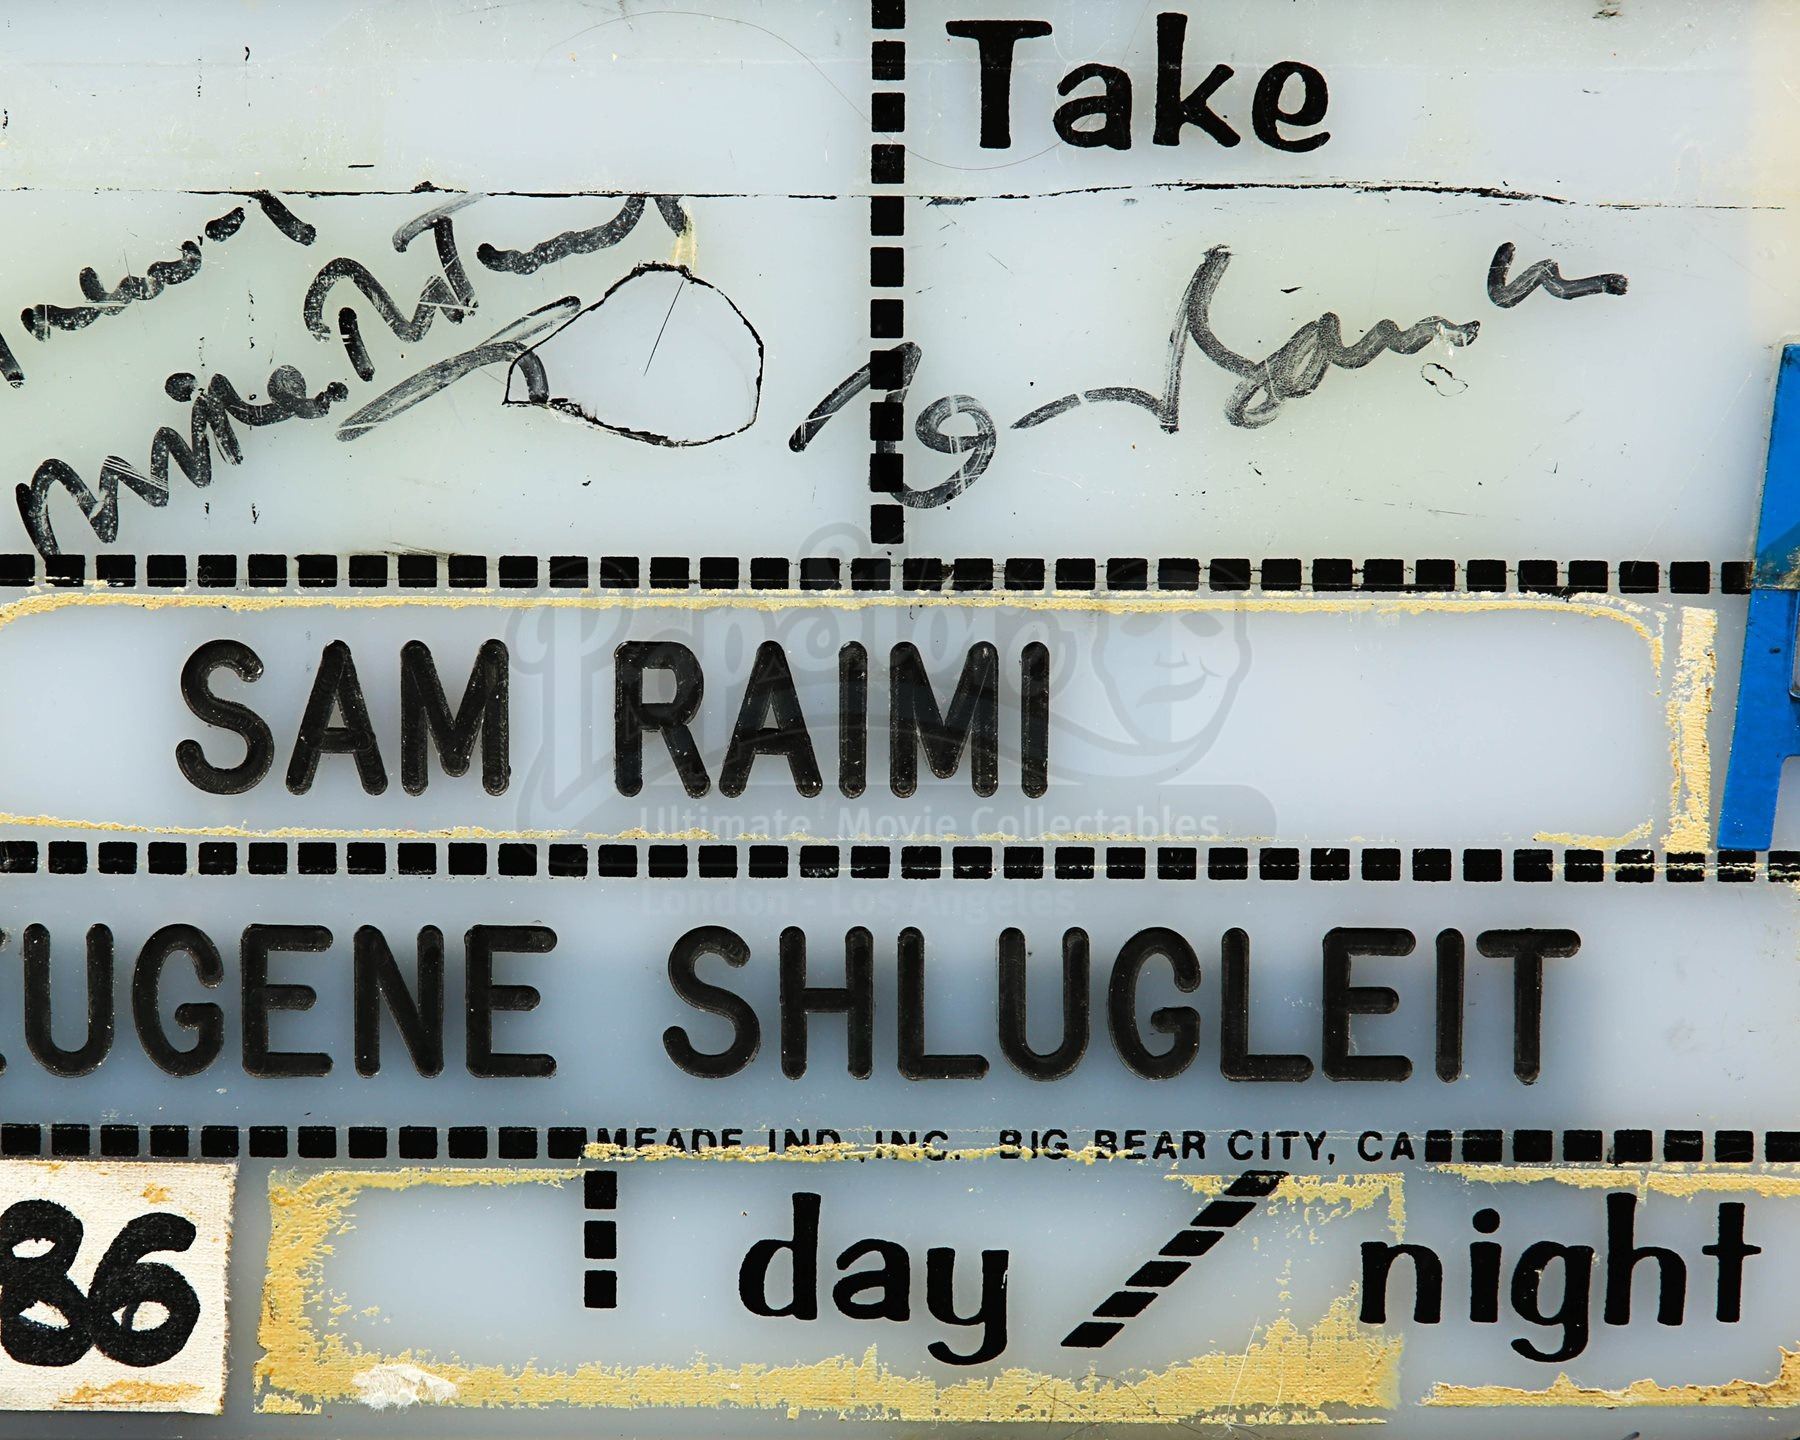 Take
SAM RAIMI
EUGENE SHLUGLEIT
MEADE IND., INC. BIG BEAR CITY, CA
86
day / night
Propstore
Ultimate Movie Collectables
London - Los Angeles